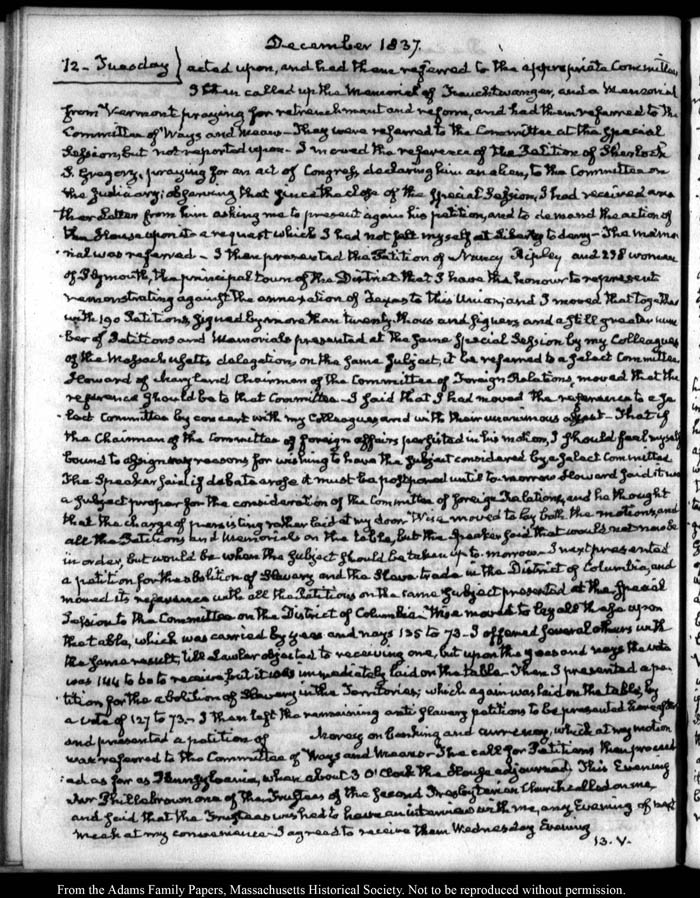 December 1837.
12 - Tuesday } acted upon, and had them referred to the appropriate Committees
I then called up the Memorial of Feuchtwanger, and a Memorial
from Vermont praying for retrenchment and reform, and had them referred to the
Committee of Ways and Means - They were referred to the Committee at the Special
Session, but not reported upon - I moved the reference of the Petition of Sherlock
S. Gregory, praying for an act of Congress, declaring him an alien, to the Committee on
the Judiciary; observing that since the close of the Special Session, I had received ano
ther Letter from him asking me to present again his petition, and to demand the action of
the House upon it a request which I had not felt myself at liberty to deny - The memo
rial was referred - I then presented the Petition of Nancy Ripley and 238 women
of Plymouth, the principal town of the District that I have the honour to represent
remonstrating against the annexation of Texas to this Union, and I moved that together
with 190 Petitions, signed by more than twenty thousand signers and a still greater num
ber of Petitions and Memorials presented at the same Special Session by my Colleagues
of the Massachusetts delegation, on the same subject, it be referred to a select Committee
Howard of Maryland Chairman of the Committee of Foreign Relations, moved that the
reference should be to that Committee - I said that I had moved the reference to a se
lect Committee by concert with my Colleagues and with their unanimous assent - That if
the Chairman of the Committee of foreign affairs persisted in his motion, I should feel myself
bound to assign my reasons for wishing to have the subject considered by a select Committee
The Speaker said if debate arose it must be postponed until to-morrow Howard said it was
a subject proper for the consideration of the Committee of foreign Relations, and he thought
that the charge of persisting rather laid at my door Wise moved to lay both the motions, and
all the Petitions and Memorials on the table, but the Speaker said that would not now be
in order, but would be when the subject should be taken up to-morrow - I next presented
a petition for the abolition of Slavery and the Slave trade in the District of Columbia, and
moved its reference with all the Petitions on the same subject presented at the Special
Session to the Committee on the District of Columbia Wise moved to lay all these upon
the table, which was carried by yeas and nays 135 to 73 - I offered several others with
the same result, till Lawler objected to receiving one, but upon the yeas and nays the vote
was 144 to 60 to receive, but it was immediately laid on the table - Then I presented a pe
tition for the abolition of Slavery in the Territories; which again was laid on the table, by
a vote of 127 to 73. - I then left the remaining anti Slavery petitions to be presented hereafter
and presented a petition of Morey on banking and currency, which at my motion
was referred to the Committee of Ways and Means - The call for Petitions then proceed
ed as far as Pennsylvania, when about 3 O'Clock the House adjourned. This Evening
Mr one of the Trustees of the Second Presbyterian Church called on me
and said that the Trustees wished to have an interview with me, any Evening of next
week at my convenience - I agreed to receive them Wednesday Evening
13. V.
From the Adams Family Papers, Massachusetts Historical Society. Not to be reproduced without permission.